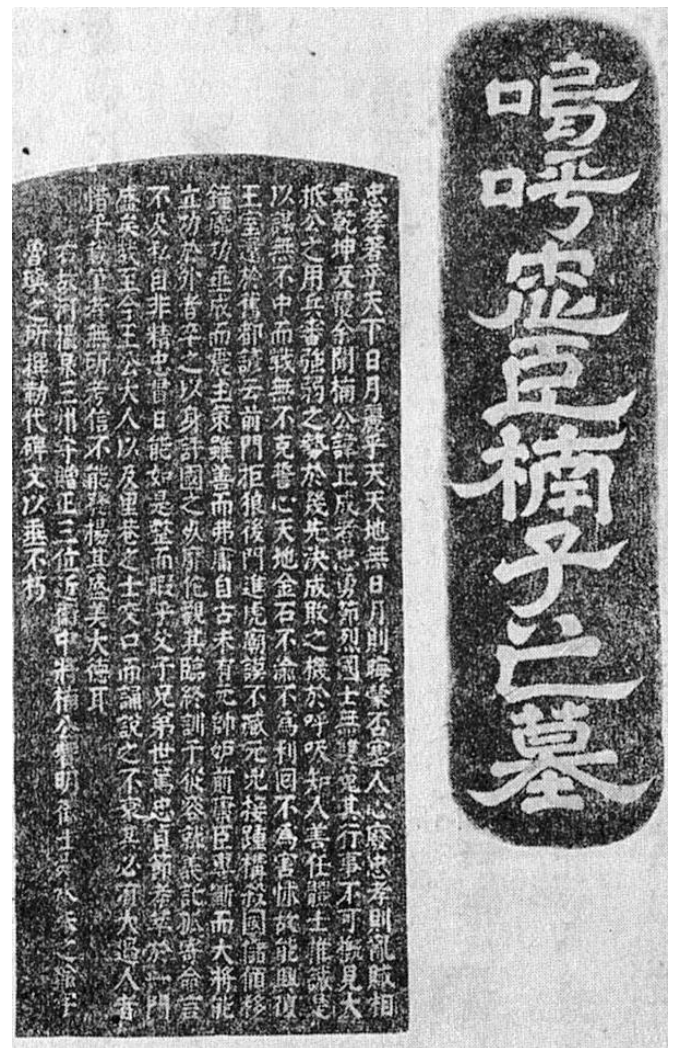 嗚呼忠臣楠子之墓
忠孝著乎天下日月麗乎天天地無日月則晦蒙否塞人心廢忠孝則亂賊相
尋乾坤反覆余聞楠公諱正成者忠勇節烈國士無雙蒐其行事不可概見大
抵公之用兵審強弱之勢於幾先決成敗之機於呼吸知人善任體士推誠是
以謀無不中而戰無不克誓心天地金石不渝不為利回不為害怵故能興復
王室還於舊都諺云前門拒狼後門進虎廟謨不臧元兇接踵構殺國儲傾移
鐘簴功垂成而震主策雖善而弗庸自古未有元帥妒前庸臣專斷而大將能
立功於外者卒之以身許國之死靡佗觀其臨終訓子從容就義託孤寄命言
不及私自非精忠貫日能如是整而暇乎父子兄弟世篤忠貞節孝萃於一門
盛矣哉至今王公大人以及里巷之士交口而誦說之不衰其必有大過人者
惜乎載筆者無所考信不能發揚其盛美大德耳
右故河攝泉三州守贈正三位近衛中將楠公贊明徵士舜水朱之瑜字
魯璵之所撰勒代碑文以垂不朽